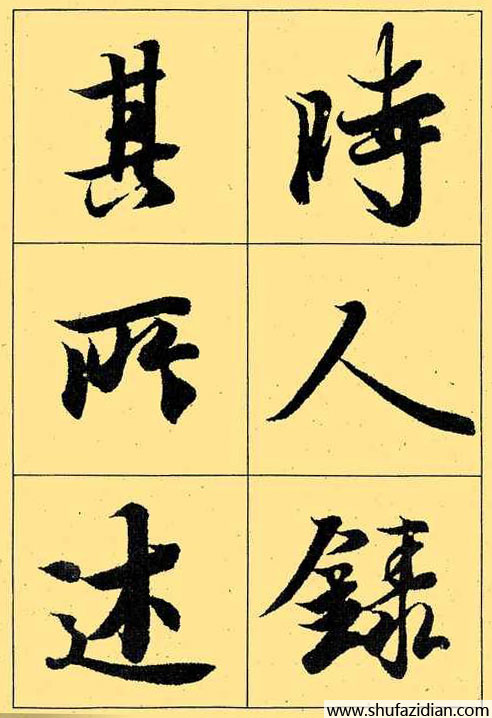 時人錄
其所述
www.shufazidian.com